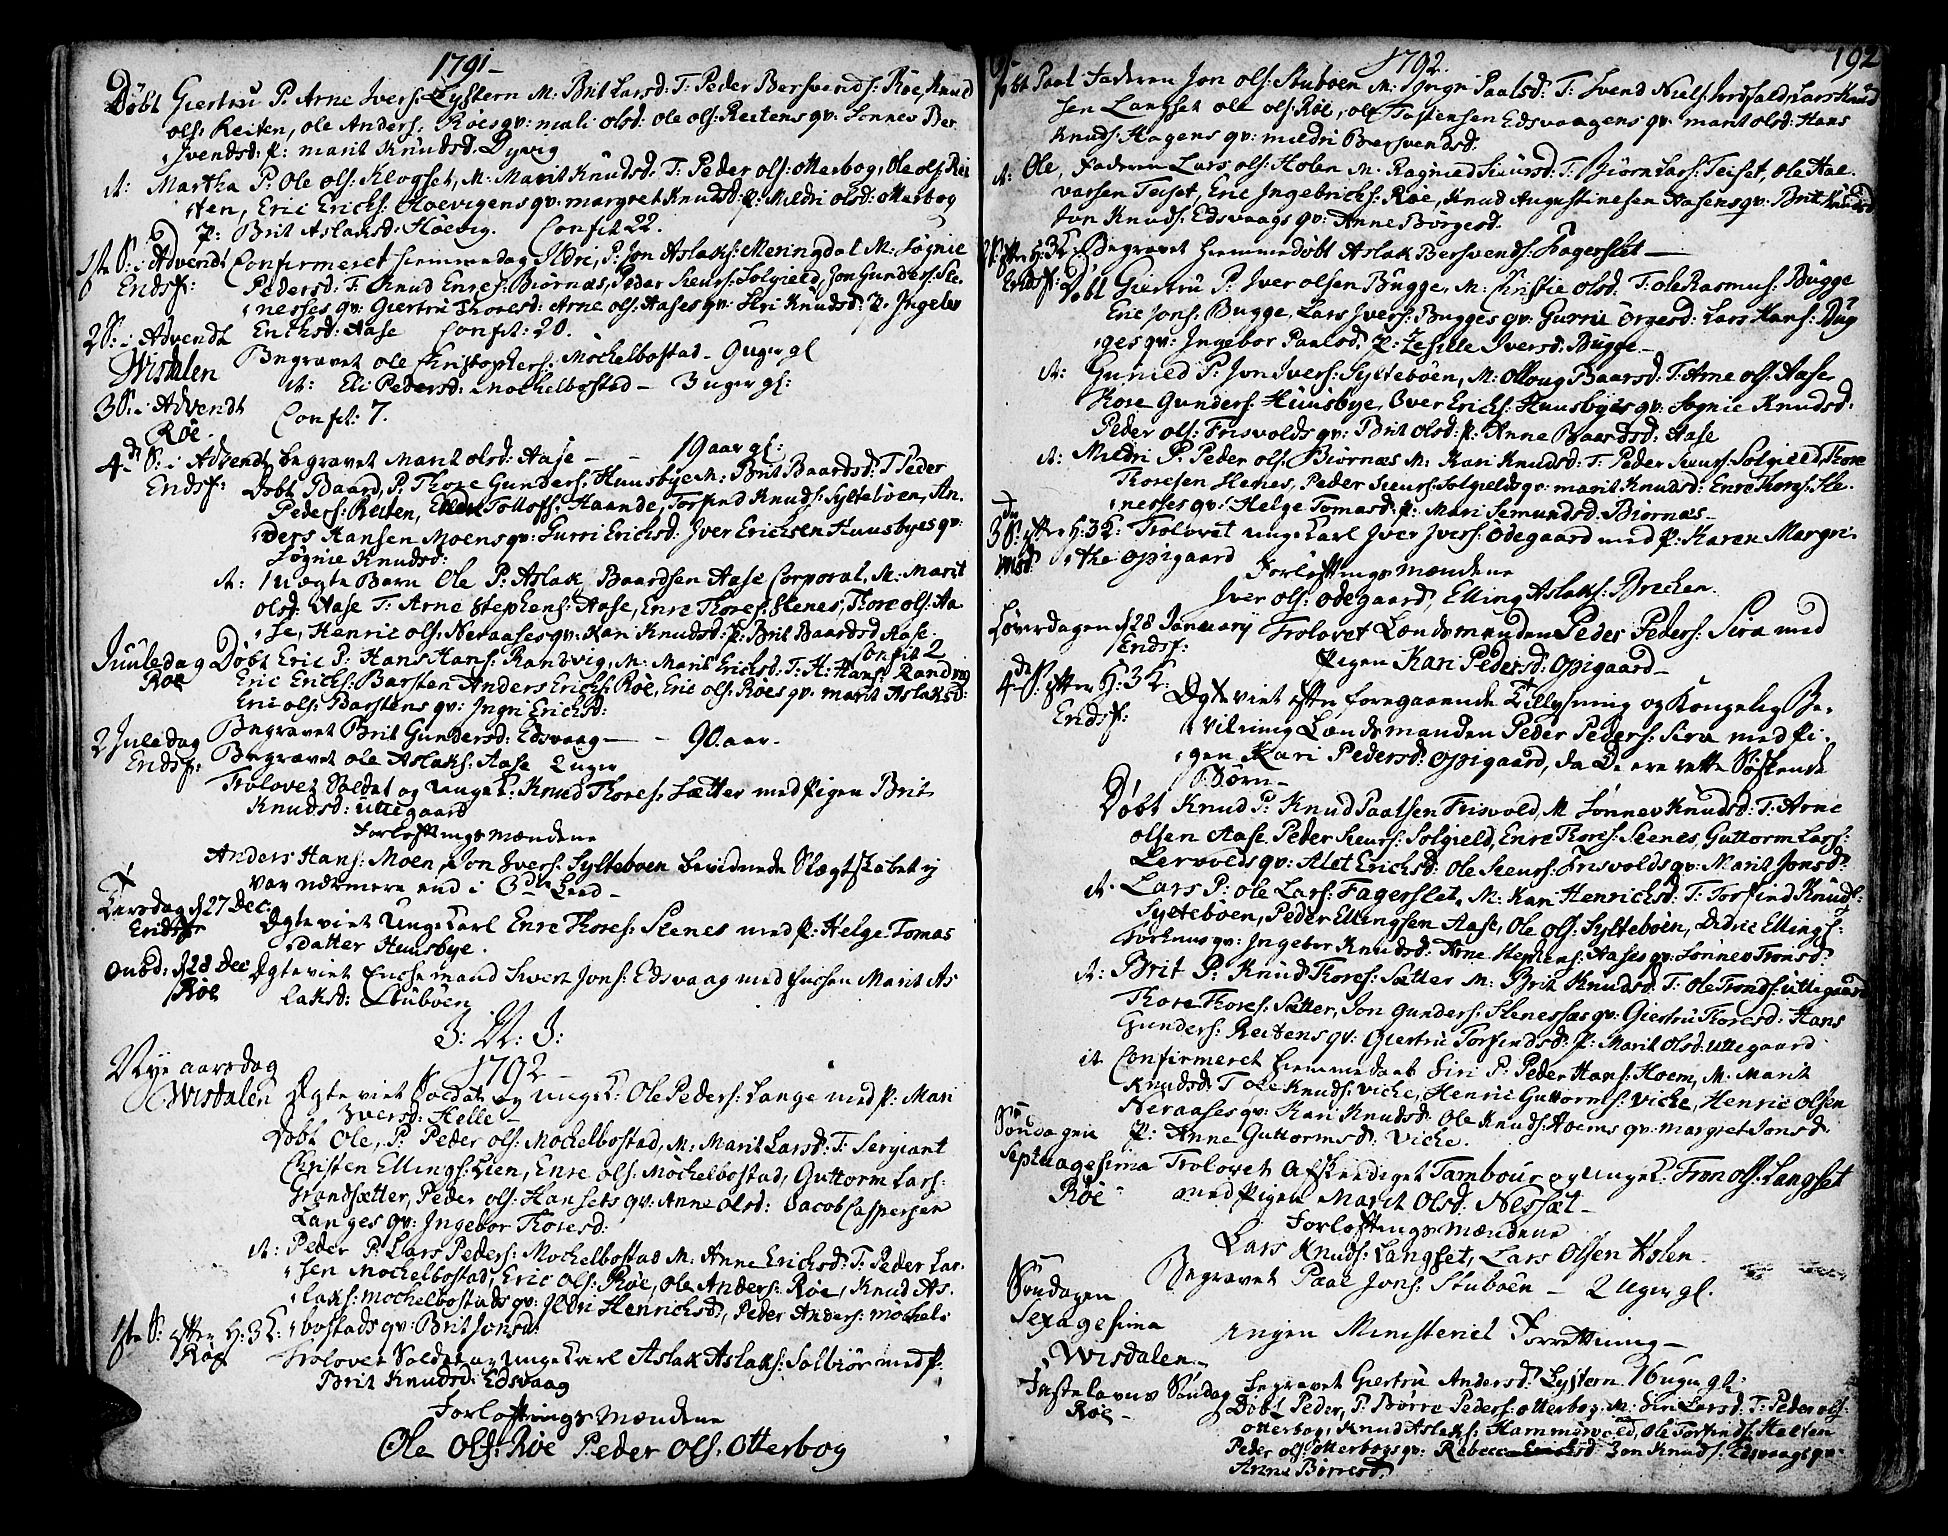 1791
Døbt Giertru P: Arne Ivers: Lystern M: Brit Larsd: T: Peder Bersvends: Röe, Knud
ols: Reiten, Ole Anders: Röes qv: mali olsd: ole ols: Reitens qv: Sonnev Ber
svendsd: p: marit Knudsd: Dyvig
it: Martha P: Ole ols: Klogset, M: Marit Knudsd: T: Peder ols: otterbog, Ole ols: Rei
ten, Eric Erichs: Hoevigens qv: margret Knudsd: p: Mildri olsd: otterbog
p: Brit Aslaksd: Höevig. Confit: 22.
1ste S: i Advendt Confirmeret hiemmedag Ildri, P: Jon Aslaks: Meringdal M: Søgnie
Eridsf: Pedersd: T: Knud Enres: Biörnæs, Peder Sieurs: Solgield, Jon Gunders: Ste
nesses qv: Giertru Thoresd: Arne ols: Aases qv: Siri Knudsd: p: Ingebor
2 S: i Advendt Erichsd: Aase Confit: 20.
Wisdalen Begravet ole Christophers: Mochelbostad - 9 uger gl
it: Eli Pedersd: Mochelbostad - 3 uger gl:
3 S: i Advendt Confit: 7.
Röe.
4de S: i Advendt begravet Marit olsd: Aase - - 19 aar gl:
Eridsf: Døbt Baard, P: Thore Gunders: Huusbye M: Brit Baardsd: T Peder
Peders: Reiten, Tollofs: Haande, Torfind Knuds: Syltebøen, An
ders Hansen Moens qv: Gurri Erichsd: Iver Erichsen Huusbyes qv:
Søgnie Knudsd:
it: Uægte Barn Ole P: Aslak Baardsen Aase Corporal, M: Marit
olsd: Aase T: Arne Stephens: Aase, Enre Thores: Stenes, Thore ols: Aa
se, Henric ols: Neraases qv: Kari Knudsd: p: Brit Baardsd Aase.
Confit 2
Juuledag Døbt Eric P: Hans Hans: Randvig, M: Marit Erichsd: T: H: Hans: Randvig
Röe Eric Erichs: Barsten Anders Erichs: Röe, Eric ols: Röes qv: marit Aslaksd:
Eric ols: Barstens qv: Ingri Erichsd:
2 Juledag Begravet Brit Gundersd: Edsvaag - - 90. aar.
Eridsf: Begravet ole Aslaks: Aase 2 uger
Trolovet Soldat og Unge K: Knud Thores: Sætter med Pigen Brit
Knudsd: uttegaard
Forloftningsmændene
Anders Hans: Moen, Jon Ivers: Sylteboen bevidnede Slægtskabet ij
var nærmere end i 3de Leed -
Tiirsdag d: 27 Dec: Egteviet Unge Karl Enre Thores: Stenes med p: Helge Tomas
Eridsf: datter Huusbye.
Onsd: d: 28 Dec Egteviet Enchemand Sivert Jons: Edsvaag med Enchen Marit As
Röe laksd: Stuboen
I: N: J:
1792
Nye aarsdag
Wisdalen Egteviet Soldat og unge K: Ole Peders: Lange med p: Mari
Iversd: Helle -
Døbt Ole, P: Peder ols: Mochelbostad, M: Marit Larsd: T: Sergiant
Christen Ellings: Lien, Enre ols: Mochelbostad, Guttorm Lars:
Grandsætter, Peder ols: Hansets qv: Anne olsd: Jacob Caspersen
Langes qv: Ingebor Thoresd:
it: Peder P: Lars Peders: Mochelbostad M: Anne Erichsd: T: Peder Lar
sen Mochelbostad, Eric ols: Röe, Ole Anders: Röe, Knud As
laks: mochelbostads qv: Ildri Henrichsd, Peder Anders: møchel
1ste S: efter H: 3 K: bostads qv: Brit Jonsd:
Röe Trolovet Soldat og unge Karl Aslak Aslaks: Solbiör med P:
Brit Knudsd: Edsvaag
Forloftningsmændene
Ole Ols: Röe Peder Ols: Otterbog
1792. 192
Døbt Paal Faderen Jon ols: Stuboen M: Ingri Paalsd: T: Svend Niels: Lars Knud
sen Langset ole ols: Röe, ole Tostensen Edsvaagens qv: marit olsd: Hans
Knuds: Hagens qv: mildri Bersvendsd:
it: Ole, Faderen Lars ols: Holen M: Ragnild Siursd: T: Biørn Lars: Teiset, Ole Hal
varsen Teiset, Eric Ingebrichs: Röe, Knud Augustinesen Aasens qv: Brit Knudsd
Jon Knuds: Edsvaags qv: Anne Børgesd:
2 S: efter H: 3 K: Begravet hiemmedøbt Aslak Bersvends: Fagerslet -
Eridsf: Døbt Giertru P: Iver olsen Bugge, M: Christie olsd: T: ole Rasmus: Bugge
Eric Jons: Bugge, Lars Ivers: Bugges qv: Gurrie Örgesd: Lars Hans: Bug
ges qv: Ingebor Paalsd: p: Zesille Iversd: Bugge -
it: Gunild P: Jon Ivers: Syltebøen, M: Olloug Baarsd: T: Arne ols: Aase
Thore Gunders: Huusbye, Iver Erichs: Huusbyes qv: Søgnie Knudsd:
Peder ols: Frisvolds qv: Brit olsd: p: Anne Baardsd: Aase
it: Mildri P: Peder ols: Biörnæs M: Kari Knudsd: T: Peder Sieurs: Solgield, Thore
Thoresen Henes, Peder Sieurs: Solgields qv: marit Knudsd: Enre Thores: Ste
nesses qv: Helge Tomasd: p: Mari Semundsd: Biornæs -
3de S: efter H: 3 K: Trolovet unge Karl Iver Ivers: Ödegaard med p: Karen Margre
the opigaard
Forloftningsmændene
Iver ols: Ödegaard, Elling Aslaks: Brechen.
Løverdagen d 28 January Trolovet Lændsmanden Peder Peders: Sira med
Eridsf: Pigen Kari Pedersd: Opigaard -
4de S: efter H: 3 K:
Eridsf: Egteviet efter foregaaende Tillysning og Kongelig Be
vilning Lændsmanden Peder Peders: Sira med Pi
gen Kari Pedersd: Opigaard, da De ere rette Søskende
Børn -
Døbt Knud P: Knud Paalsen Frisvold, M Sønnev Knudsd: T: Arne
olsen Aase Peder Sieurs: Solgield, Enre Thores: Stenes, Guttorm Lars:
Lervolds qv: Alet Erichsd: Ole Sieurs: Frisvolds qv: Marit Jonsd:
it: Lars P: ole Lars: Fagerslet, M: Kari Henrichsd: T: Torfind Knuds:
Sylteböen, Peder Ellingsen Aase, Ole ols: Syltebøen, Didric Ellings:
qv: Ingebor Knudsd: Arne Stephens: Aases qv: Sønnev Tronsd:
it: Brit P: Knud Thores: Sætter M: Brit Knudsd: T: Ole Tronds: Uttegaard
Thore Thores: Sætter, Jon Gunders: Stenesses qv: Giertru Thoresd: Hans
Gunders: Reitens qv: Giertru Torfindsd: p: Marit Olsd: Uttegaard
it Confirmeret hiemmedaab Siri P: Peder Hans: Hoem, M: Marit
Knudsd: T Ole Knuds: Viche, Henric Guttorms: Viche, Henric Olsen
Neraases qv: Kari Knudsd: Ole Knuds: Hoems qv: margret Jonsd:
Søndagen p: Anne Guttormsd: Viche.
Septuagesima Trolovet Afskeediget Tambour og Unge K: Tron ols: Langset
Röe med Pigen Marit Olsd: Nessæt -
Forloftningsmændene
Lars Knuds: Langset, Lars Olsen Holen
Begravet Paal Jons: Stuboen - 2 Uger gl.
Søndagen
Sexagesima
Ingen Ministeriel Forretning -
Wisdalen -
Fastelavns Søndag begravet Giertru Andersd: Lystern 16 uger gl:
Röe - Døbt Peder, P: Börre Peders: otterbog, M: Siri Larsd: T: Peder ols:
otterbog, Knud Aslaks: Hammervold, Ole Torfinds: Helten
Peder ols: otterbogs qv: Rebecc Jon Knuds: Edsvaags qv:
Anne Børresd: